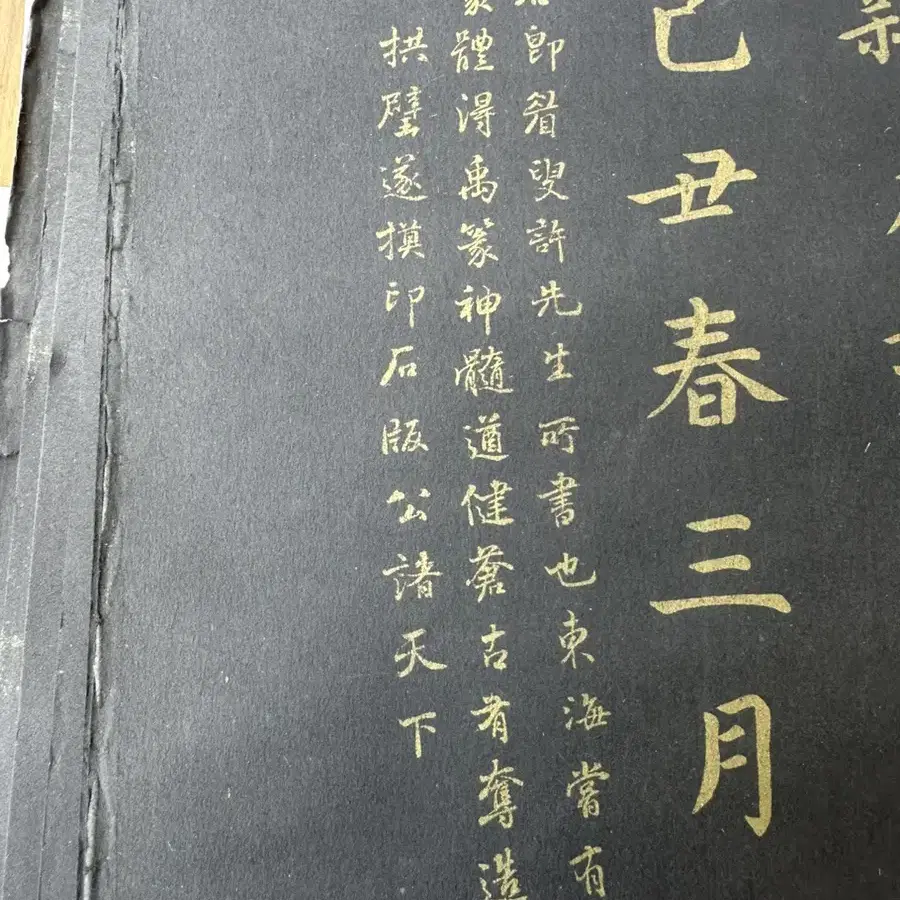 己丑春三月
即眉叟許先生所書也東海嘗有
體得禹篆神髓遒健蒼古有奪造
拱璧遂摸印石版公諸天下